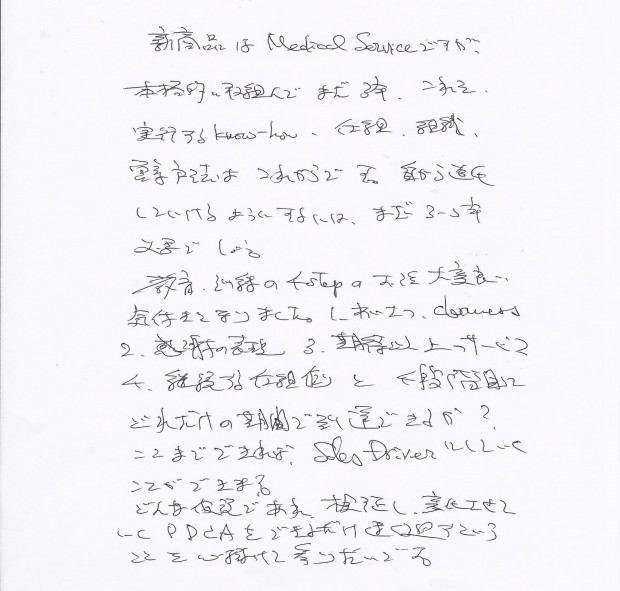 新商品は Medical Serviceですが、
本格的に取組んで まだ3年、これを、
実行するknow-how、仕組、組織、
運営方法は これからです。自から進化
していけるようにするには、まだ3〜5年
必要でしょう
教育、訓練の4stepの方法 大変良い
気付きとなりました。1.あいさつ、cleanness
2.感謝の表現 3.期待以上のサービス
4.継続する仕組作り と 4段階目に
どれだけの期間で到達できますか?
ここまでできれば、Sales Driverにしていく
ことができます。
どんな仮説であれ、検証し、変化させて
いくPDCAをできるだけ速く回すという
ことを心掛けて参りたいです